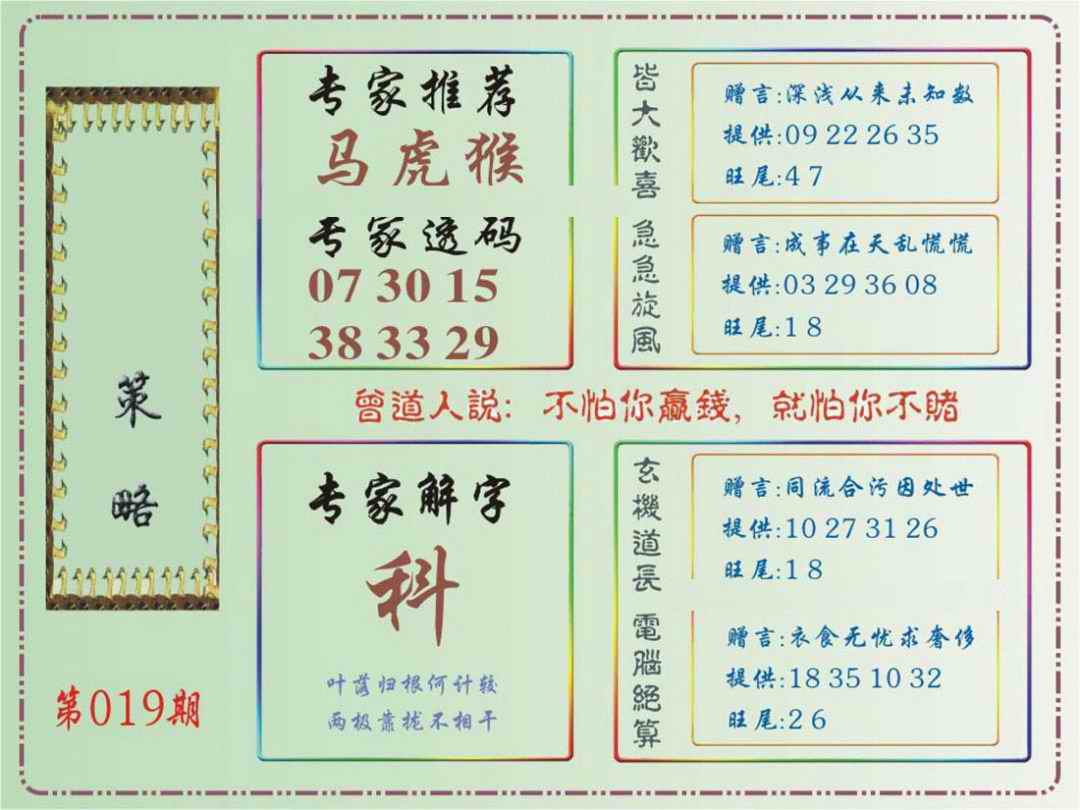 策略
第019期
专家推荐
马虎猴
专家透码
07 30 15
38 33 29
皆大歡喜
赠言:深浅从来未知数
提供:09 22 26 35
旺尾:4 7
急急旋風
赠言:成事在天乱慌慌
提供:03 29 36 08
旺尾:1 8
曾道人説: 不怕你赢錢, 就怕你不賭
专家解字
科
叶落归根何计较
两极靠拢不相干
玄機道長
赠言:同流合污因处世
提供:10 27 31 26
旺尾:1 8
電腦絕算
赠言:衣食无忧求奢侈
提供:18 35 10 32
旺尾:2 6